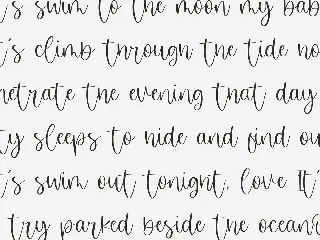 's swim to the moon my bab
's climb through the tide no
netrate the evening that day
ty sleeps to hide and find ou
's swim out tonight, love It'
try parked beside the ocean